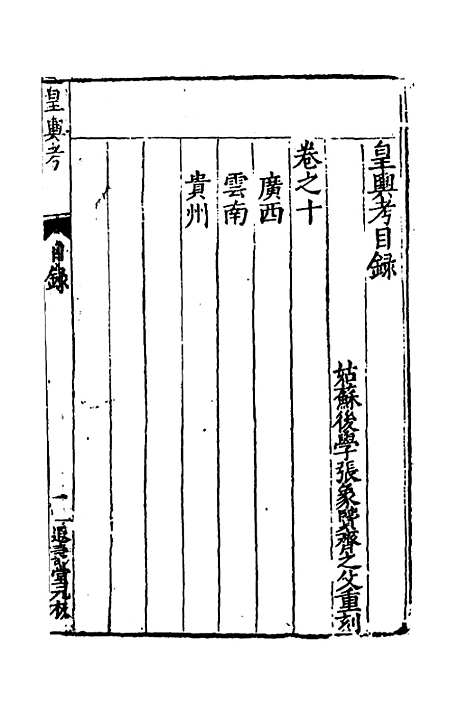 皇輿考目録
姑蘇後學張象賢齊之父重刻
卷之十
廣西
雲南
貴州
皇輿考
目録